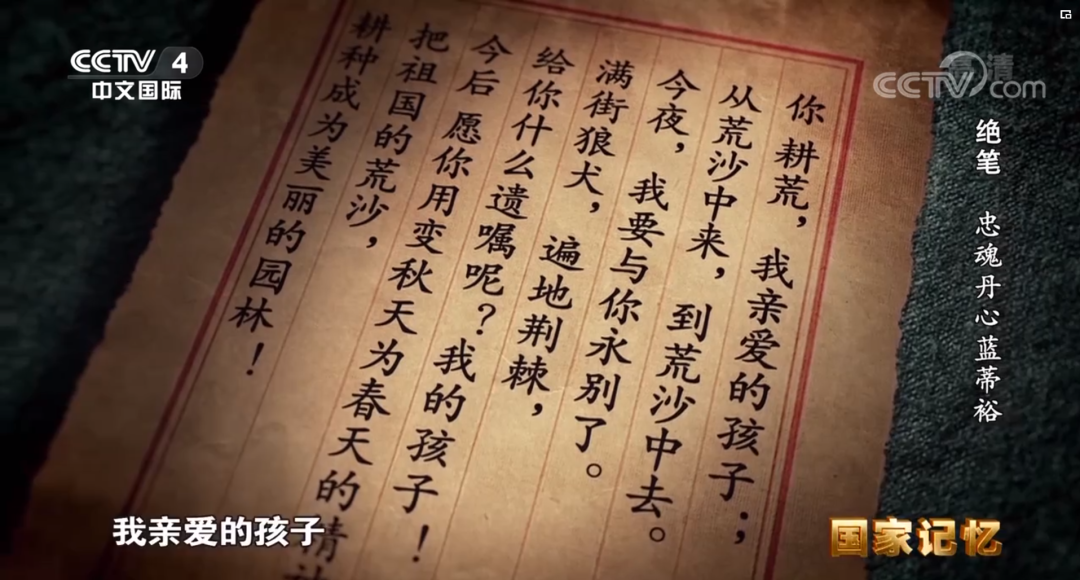 CCTV 4
中文国际
CCTV.com
清
绝笔 忠魂丹心蓝蒂裕
你 耕荒， 我亲爱的孩子；
从荒沙中来， 到荒沙中去。
今夜， 我要与你永别了。
满街狼犬， 遍地荆棘，
给你什么遗嘱呢？我的孩子！
今后 愿你用变秋天为春天的精神
把祖国的荒沙，
耕种成为美丽的园林！
我亲爱的孩子
国家记忆